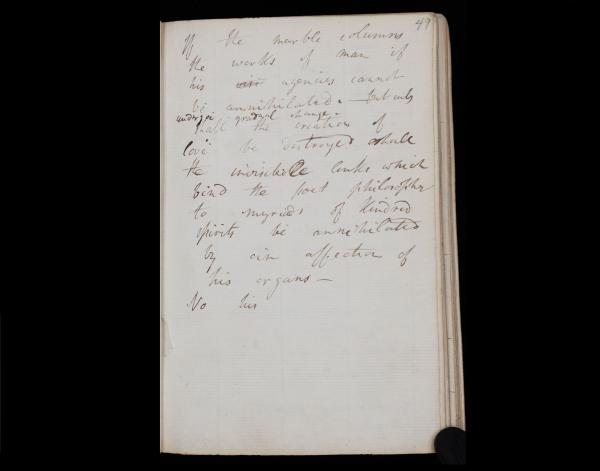 49
If the marble columns
the works of man if
his agencies cannot
be annihilated. - but only
undergoe gradual change -
Shall the creation of
love be destroyed shall
the invisible links which
bind the poet philosopher
to myriads of kindred
spirits be annihilated
by an affection of
his organs -
No his